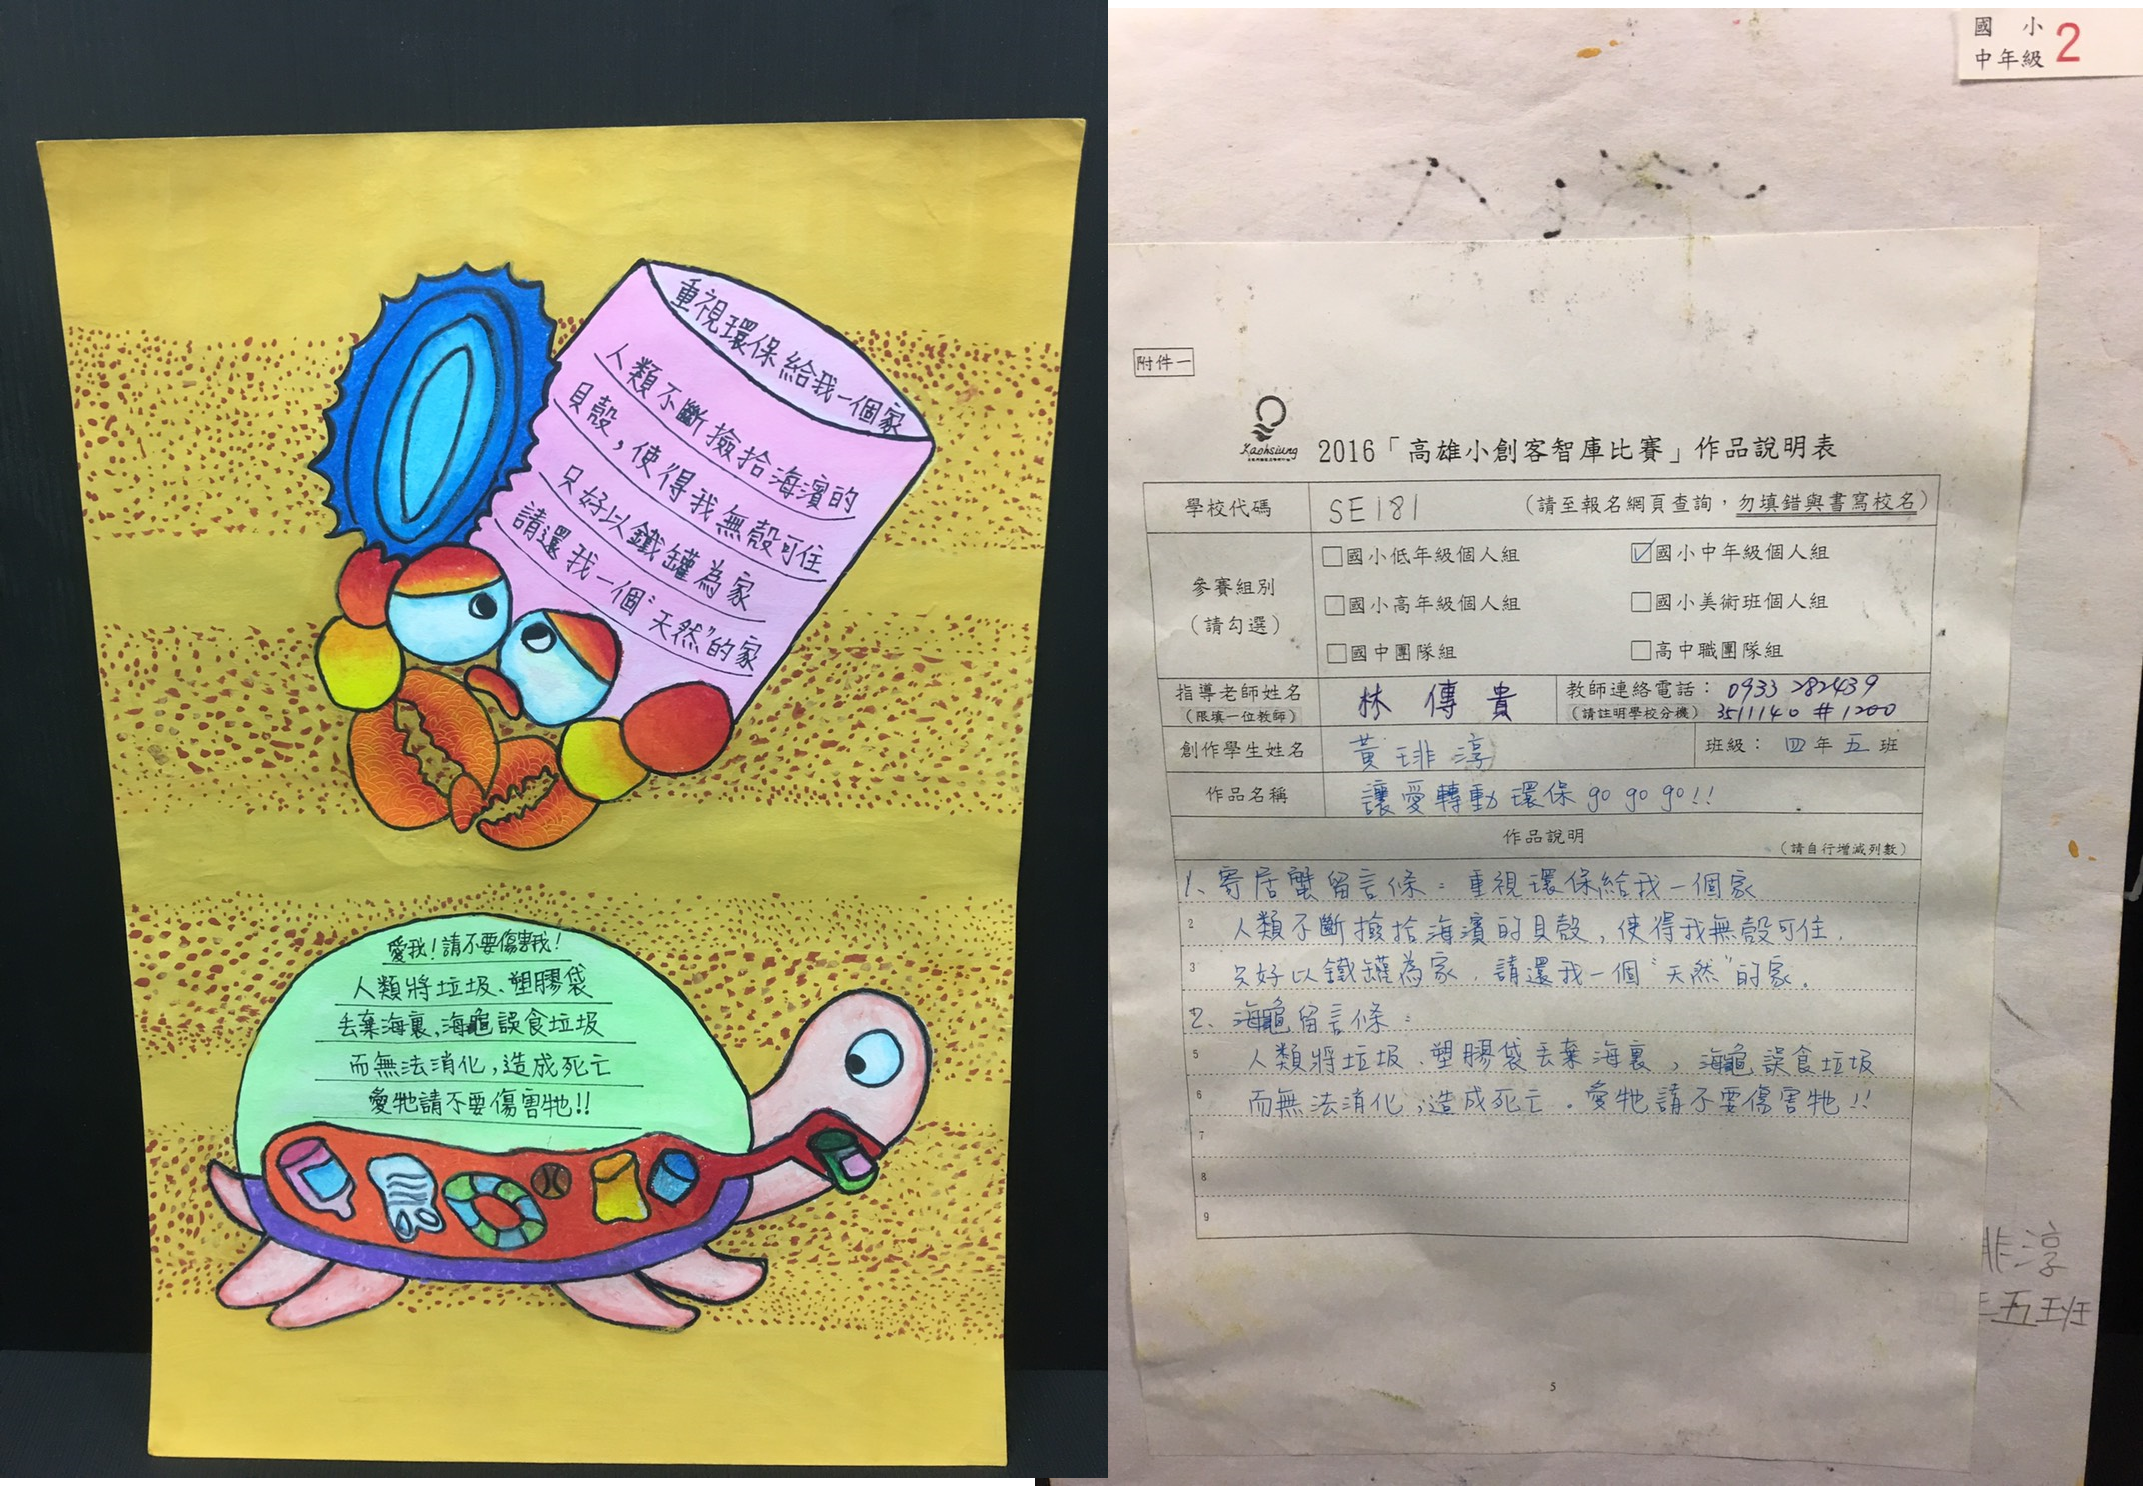 重視環保給我一個家
人類不斷撿拾海濱的
貝殼，使得我無殼可住
只好以鐵罐為家
請還我一個"天然"的家
愛我！請不要傷害我！
人類將垃圾、塑膠袋
丟棄海裏，海龜誤食垃圾
而無法消化，造成死亡
愛牠請不要傷害牠!!
國 小
中年級 2
附件一
Kaohsiung
2016「高雄小創客智庫比賽」作品說明表
學校代碼 SE181 （請至報名網頁查詢，勿填錯與書寫校名）
參賽組別
（請勾選）
□國小低年級個人組 ☑國小中年級個人組
□國小高年級個人組 □國小美術班個人組
□國中團隊組 □高中職團隊組
指導老師姓名 林傳貴 教師連絡電話：0933 282439
（限填一位教師） （請註明學校分機） 3511140 #1200
創作學生姓名 黃琲淳 班級：四年五班
作品名稱 讓愛轉動環保go go go!!
作品說明
（請自行增減列數）
1、寄居蟹留言條：重視環保給我一個家
2 人類不斷撿拾海濱的貝殼，使得我無殼可住，
3 只好以鐵罐為家，請還我一個"天然"的家。
2、海龜留言條：
5 人類將垃圾、塑膠袋丟棄海裏，海龜誤食垃圾
6 而無法消化，造成死亡。愛牠請不要傷害牠!!
7
8
9
5
淳
五班